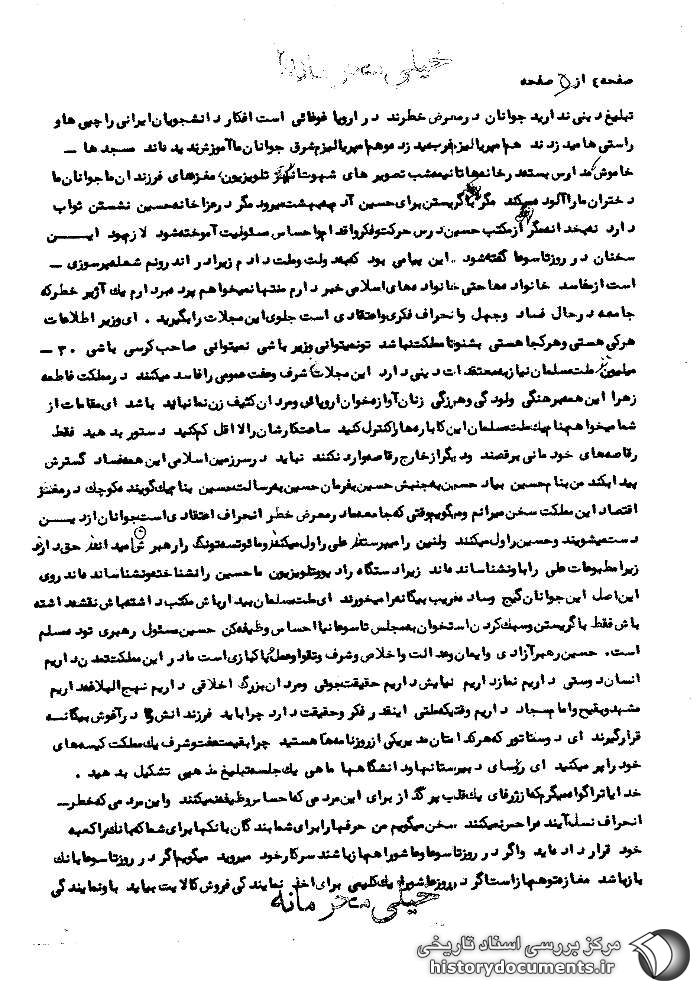 خیلی محرمانه
صفحه ٤ از ۵ صفحه
تبلیغ دینی ندارید جوانان در معرض خطرند در اروپا غوغائی است افکار دانشجویان ایرانی را چپی ها و
راستی ها میدزدند هم امپریالیزم غرب میدزد و هم امپریالیزم شرق جوانان ما آموزش ندیده اند مسجد ها –
خاموش مدارس بسته در خانه ها تا نیمه شب تصویر های شهوت انگیز تلویزیون مغزهای فرزندان ما جوانان ما
دختران ما را آلوده میکند مگر با گریستن برای حسین آدم به بهشت میرود مگر در عزاخانه حسین نشستن ثواب
دارد نه بخدا نه مگر از مکتب حسین درس حرکت و فکر و اقدام و احساس مسئولیت آموخته شود لازم بود ایــن
سخنان در روز تاسوعا گفته شود . این پیامی بود که به دولت و ملت دادم زیرا در اندرونم شعله پرسوزی –
است از مفاسد خانواده ها حتی خانواده های اسلامی خبر دارم منتها نمیخواهم پرده بردارم یک آژیر خطر که
جامعه در حال فساد وجهل وانحراف فکری و اعتقادی است جلوی این مجلات را بگیرید . ای وزیر اطلاعات
هرکی هستی و هر کجا هستی بشنو تا مملکت نباشد تو نمیتوانی وزیر باشی نمیتوانی صاحب کرسی باشی ۳۰ –
میلیون ملت مسلمان نیاز به معتقدات دینی دارد این مجلات شرف وعفت عمومی را فاسد میکنند در مملکت فاطمه
زهرا این همه برهنگی ولودگی و هرزگی زنان آوازه خوان اروپائی و مردان کثیف زن نما نباید باشد ای مقامات از
شما میخواهم بنام یک ملت مسلمان این کاباره ها را کنترل کنید ساعت کارشان را لااقل کم کنید دستور بدهید فقط
رقاصه های خودمانی برقصند و دیگر از خارج رقاصه وارد نکنند نباید در سرزمین اسلامی این همه فساد گسترش
پیدا بکند من بنام حسین بیاد حسین به جنبش حسین بفرمان حسین به رسالت حسین بنام یک گوینده کوچک در مغز
اقتصاد این مملکت سخن میرانم و میگویم وقتی که جامعه ما در معرض خطر انحراف اعتقادی است جوانان از دیــن
دست میشویند و حسین را ول میکنند ولنین را میپرستند علی را ول میکنند و مائوتسه تونگ را رهبر نامیده اند حق دارند
زیرا مطبوعات علی را باو نشناسانده اند زیرا دستگاه رادیو و تلویزیون ما حسین را نشناخته و نشناسانده اند روی
این اصل این جوانان گیج و ساده فریب بیگانه را میخورند ای ملت مسلمان بیدار باش مکتب داشته باش نقشه داشته
باش فقط با گریستن و سبک کردن استخوان به مجلس تاسوعا نیا احساس وظیفه کن حسین مسئول رهبری توده مسلم
است . حسین رهبر آزادی وایمان وعدالت و اخلاص و شرف و تقوا و عمل پاکبازی است ما در این مملکت تمدن داریم
انسان دوستی داریم نماز داریم نیایش داریم حقیقت جوئی و مردان بزرگ اخلاقی داریم نهج البلاغه داریم
مشهد و بقیع و امام سجاد داریم وقتیکه ملتی اینقدر فکر وحقیقت دارد چرا باید فرزندانش در آغوش بیگانـه
قرار گیرند ای دو سناتور که هر کدامتان مدیر یکی از روزنامه ها هستید چرا بقیمت عفت و شرف یک مملکت کیسه های
خود را پر میکنید ای رؤسای دبیرستانها و دانشگاهها ماهی یک جلسه تبلیغ مذهبی تشکیل بدهید .
خدایا تو را گواه میگیرم که از ژرفای یک قلب پر گداز برای این مردمی که احساس وظیفه نمیکنند واین مردمی که خطر –
انحراف نسل آینده را حس نمیکنند سخن میگویم من حرفها را برای شما بندگان بانکها برای شما که بانک را کعبه
خود قرار داده اید واگر در روز تاسوعا و عاشورا هم باز باشند سر کار خود میروید میگویم اگر در روز تاسوعا بانک
باز باشد مغازه تو هم باز است اگر در روز عاشورا یک کلیمی برای اخذ نمایندگی فروش کالایت بیاید باو نمایندگی
خیلی محرمانه
مرکز بررسی اسناد تاریخی
historydocuments.ir